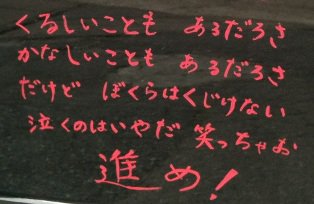 くるしいことも あるだろさ
かなしいことも あるだろさ
だけど ぼくらはくじけない
泣くのはいやだ 笑っちゃお
進め!